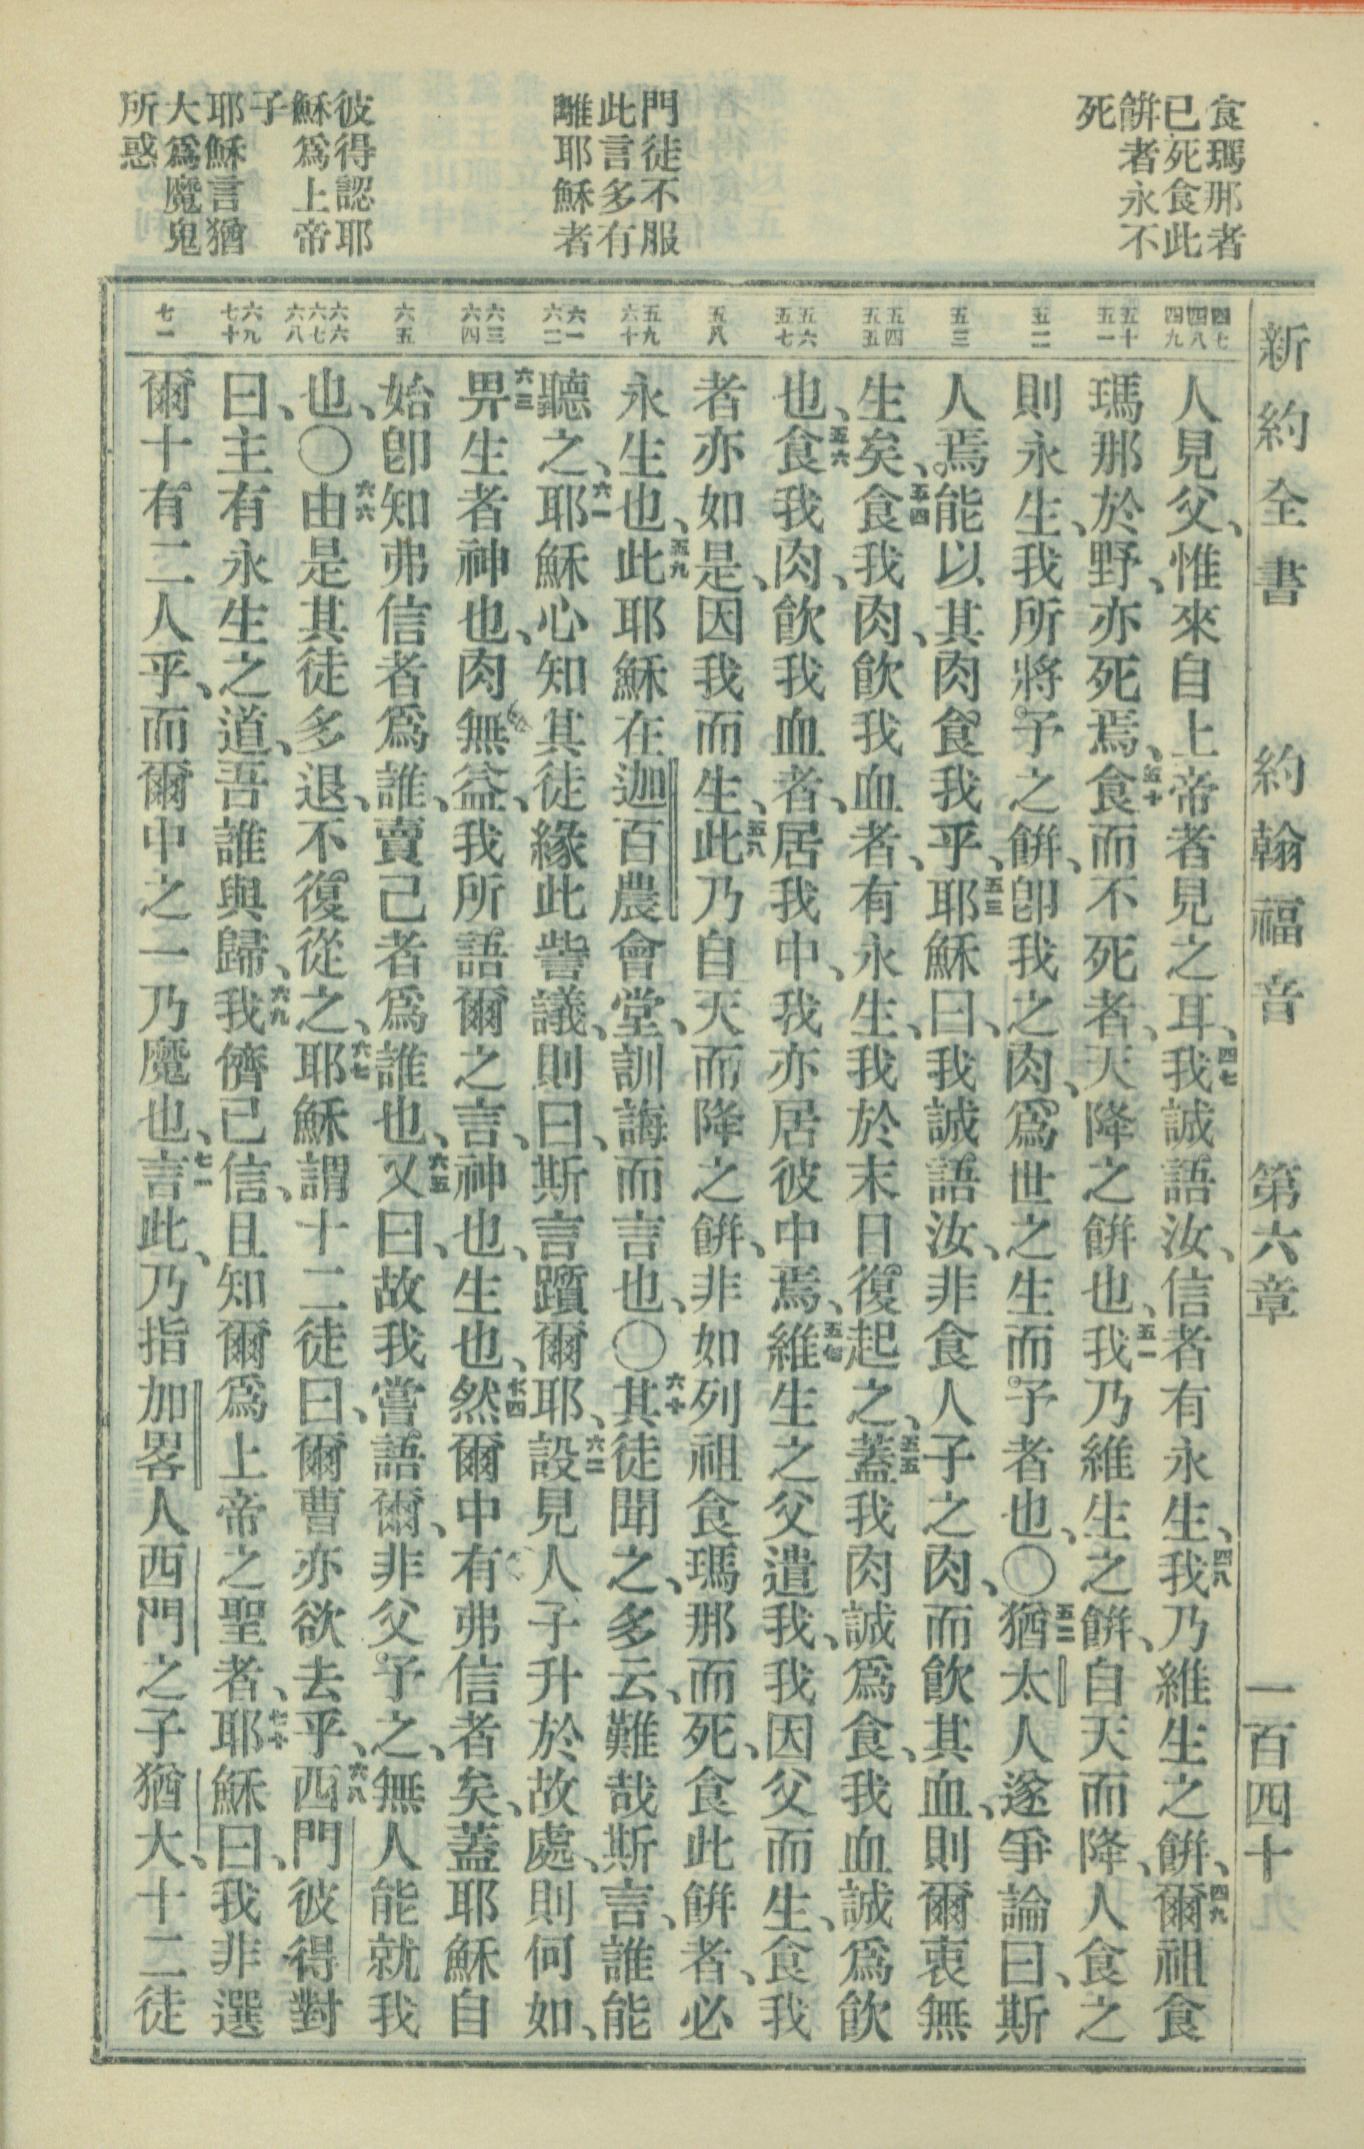 新約全書 約翰福音 第六章 一百四十
食瑪那者
已死食此
餅者永不
死
門徒不服
此言多有
離耶穌者
彼得認耶
穌為上帝
子
耶穌言猶
大為魔鬼
所惑
四七 四八 四九
五十 五一
五二
五三
五四 五五
五六 五七
五八
五九 六十
六一 六二
六三 六四
六五
六六 六七 六八
六九 七十
七一
人見父、惟來自上帝者見之耳、四七我誠語汝、信者有永生、四八我乃維生之餅、四九爾祖食
瑪那於野、亦死焉、五十食而不死者、天降之餅也、五一我乃維生之餅、自天而降、人食之
則永生、我所將予之餅、卽我之肉、爲世之生而予者也、〇五二猶太人遂爭論曰、斯
人焉能以其肉食我乎、五三耶穌曰、我誠語汝、非食人子之肉、而飲其血、則爾衷無
生矣、五四食我肉、飲我血者、有永生、我於末日復起之、五五蓋我肉誠爲食、我血誠爲飲
也、五六食我肉、飲我血者、居我中、我亦居彼中焉、五七維生之父遣我、我因父而生、食我
者亦如是、因我而生、五八此乃自天而降之餅、非如列祖食瑪那而死、食此餅者、必
永生也、五九此耶穌在迦百農會堂、訓誨而言也、〇六十其徒聞之、多云、難哉斯言、誰能
聽之、六一耶穌心知其徒緣此訾議、則曰、斯言躓爾耶、六二設見人子升於故處、則何如、
六三畀生者神也、肉無益、我所語爾之言、神也、生也、六四然爾中有弗信者矣、蓋耶穌自
始卽知弗信者爲誰、賣己者爲誰也、六五又曰、故我嘗語爾、非父予之、無人能就我
也、〇六六由是其徒多退、不復從之、六七耶穌謂十二徒曰、爾曹亦欲去乎、六八西門彼得對
曰、主有永生之道、吾誰與歸、六九我儕已信、且知爾爲上帝之聖者、七十耶穌曰、我非選
爾十有二人乎、而爾中之一乃魔也、七一言此、乃指加畧人西門之子猶大、十二徒